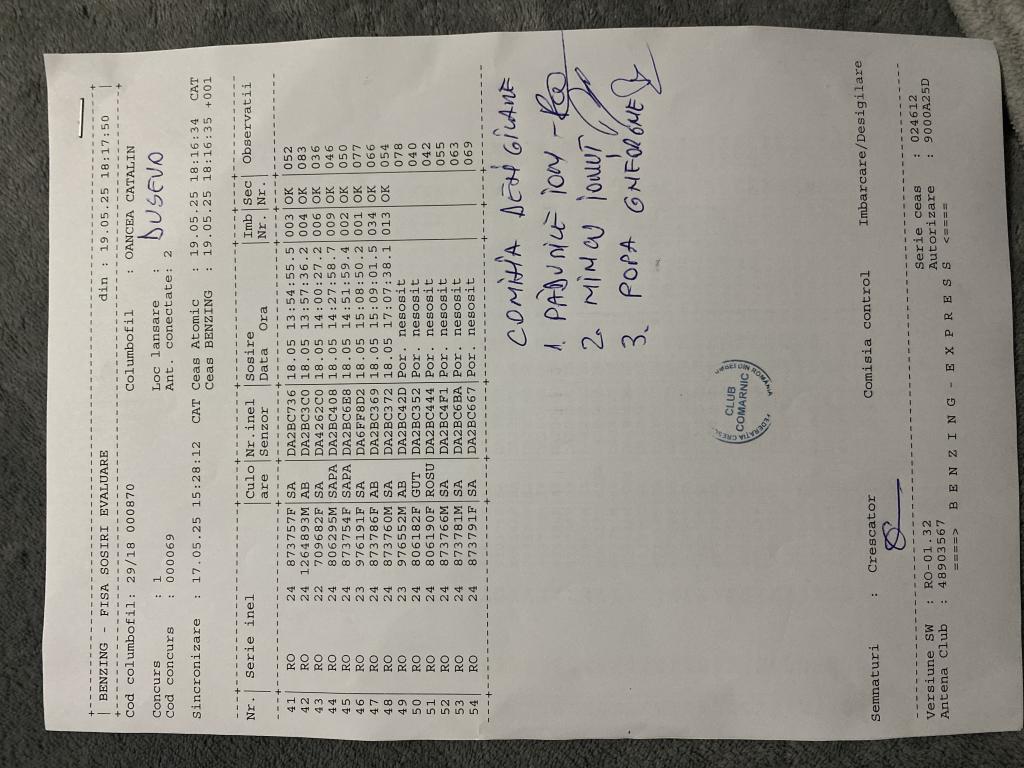 BENZING - FISA SOSIRI EVALUARE din : 19.05.25 18:17:50
Cod columbofil: 29/18 000870 Columbofil : OANCEA CATALIN
Concurs : 1 Loc lansare : DUSEVO
Cod concurs : 000069 Ant. conectate: 2
Sincronizare : 17.05.25 15:28:12 CAT Ceas Atomic : 19.05.25 18:16:34 CAT
Ceas BENZING : 19.05.25 18:16:35 +001
Nr. | Serie inel | Culo | Nr.inel | Sosire | Imb | Sec | Observatii
are | Senzor | Data Ora | Nr. | Nr.
41 | RO 24 873757F | SA | DA2BC736 | 18.05 13:54:55.5 | 003 | OK | 052
42 | RO 24 1264893M | AB | DA2BC3C0 | 18.05 13:57:36.2 | 004 | OK | 083
43 | RO 22 709682F | SA | DA4262C0 | 18.05 14:00:27.2 | 006 | OK | 036
44 | RO 24 806295M | SAPA | DA2BC408 | 18.05 14:27:58.7 | 009 | OK | 046
45 | RO 24 873754F | SAPA | DA2BC6B8 | 18.05 14:51:59.4 | 002 | OK | 050
46 | RO 23 976191F | SA | DA6FF8D2 | 18.05 15:08:50.2 | 001 | OK | 077
47 | RO 24 873786F | AB | DA2BC369 | 18.05 15:09:01.5 | 034 | OK | 066
48 | RO 24 873760M | SA | DA2BC372 | 18.05 17:07:38.1 | 013 | OK | 054
49 | RO 23 976552M | AB | DA2BC42D | Por. nesosit | 078
50 | RO 24 806182F | GUT | DA2BC352 | Por. nesosit | 040
51 | RO 24 806190F | ROSU | DA2BC444 | Por. nesosit | 042
52 | RO 24 873766M | SA | DA2BC4F1 | Por. nesosit | 055
53 | RO 24 873781M | SA | DA2BC6BA | Por. nesosit | 063
54 | RO 24 873791F | SA | DA2BC667 | Por. nesosit | 069
1. PADURICE IONY -
2. MINCU IONUT
3. POPA
CLUB
COMARNIC
Semnaturi : Crescator Comisia control Imbarcare/Desigilare
Versiune SW : RO-01.32 Serie ceas : 024612
Antena Club : 48903567 Autorizare : 9000A25D
====> B E N Z I N G - E X P R E S S <====